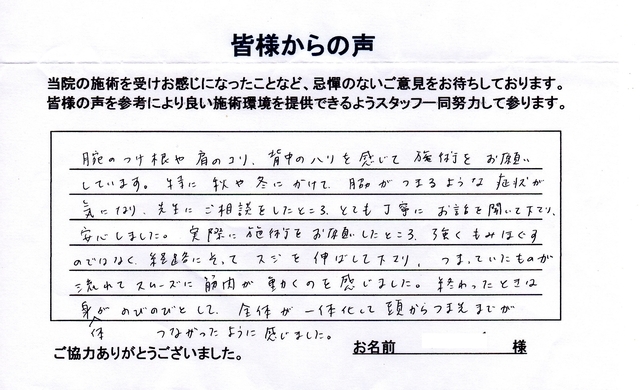 皆様からの声
当院の施術を受けお感じになったことなど、忌憚のないご意見をお待ちしております。
皆様の声を参考により良い施術環境を提供できるようスタッフ一同努力して参ります。
腕のつけ根や肩のコリ、背中のハリを感じて施術をお願い
しています。特に秋や冬にかけて、脳がつまるような症状が
気になり、先生にご相談をしたところ、とても丁寧にお話を聞いて下さり、
安心しました。実際に施術をお願いしたところ、強くもみほぐす
のではなく、経路にそってスジを伸ばして下さり、つまっていたものが
流れてスムーズに筋肉が動くのを感じました。終わったときは
身がのびのびとして、全体が一体化して頭からつま先までが
体
つながったように感じました。
ご協力ありがとうございました。
お名前 様